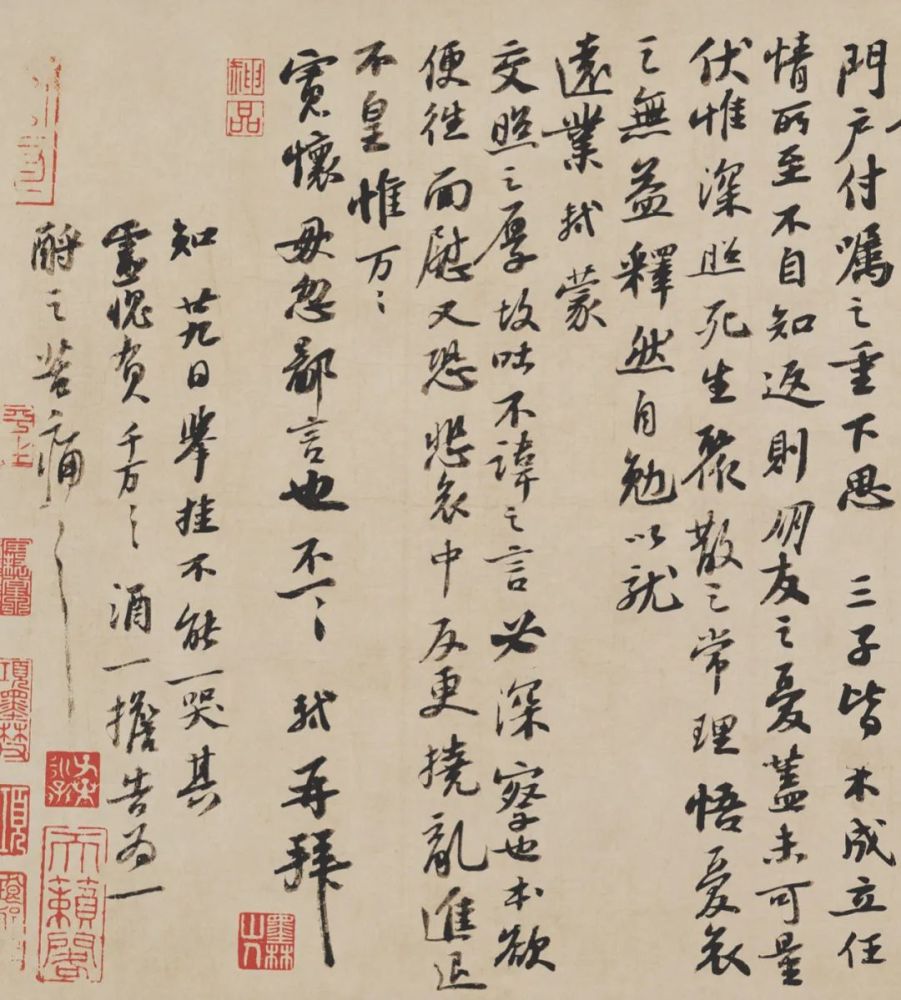 門戶付囑之重下思 三子皆未成立任
情所至不自知返則朋友之憂蓋未可量
伏惟深照死生聚散之常理悟憂哀
之無益釋然自勉以就
遠業軾蒙
交照之厚故吐不諱之言必深察也本欲
便往面慰又恐悲哀中反更撓亂進退
不皇惟万〻
寬懷毋忽鄙言也不一〻 軾再拜
知廿九日舉掛不能一哭其
靈愧負千万〻 酒一擔告為一
酹之苦痛〻
神品
墨林山人
天籟閣